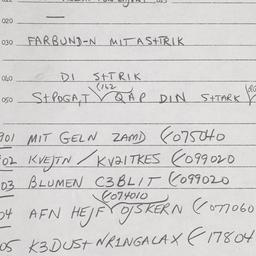 020
030 FARBUND-N MIT ASTRIK
040 DI STRIK
(162
050 STPOGA,T QAP DIN STARK
901 MIT GELN ZAMD (075040
02 KVEJTN / KV2ITKES (099020
03 BLUMEN C3BLIT (099020
(074010
04 AFN HEJF OJSKERN (077060
05 K3DUST NR1NGALAX (17804